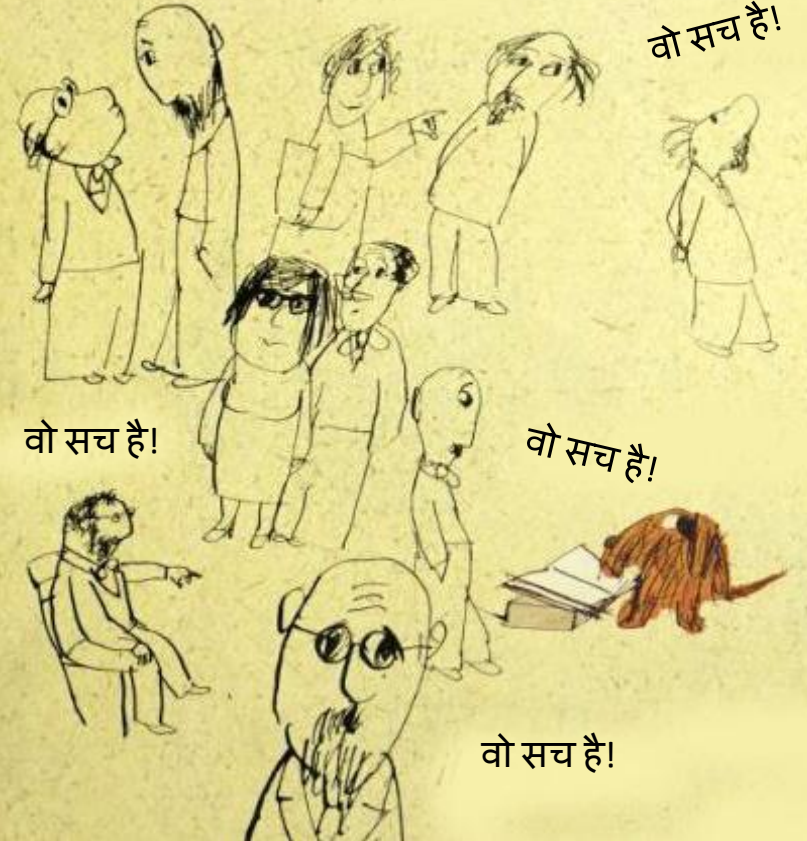 वो सच है!
वो सच है!
वो सच है!
वो सच है!